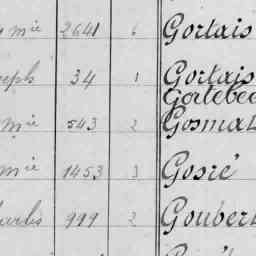 mie 2641 6 Gortais
seph 34 1 Gortais
Gortebec
mie 543 2 Gosmat
mie 1453 3 Gosré
harles 999 2 Gouber